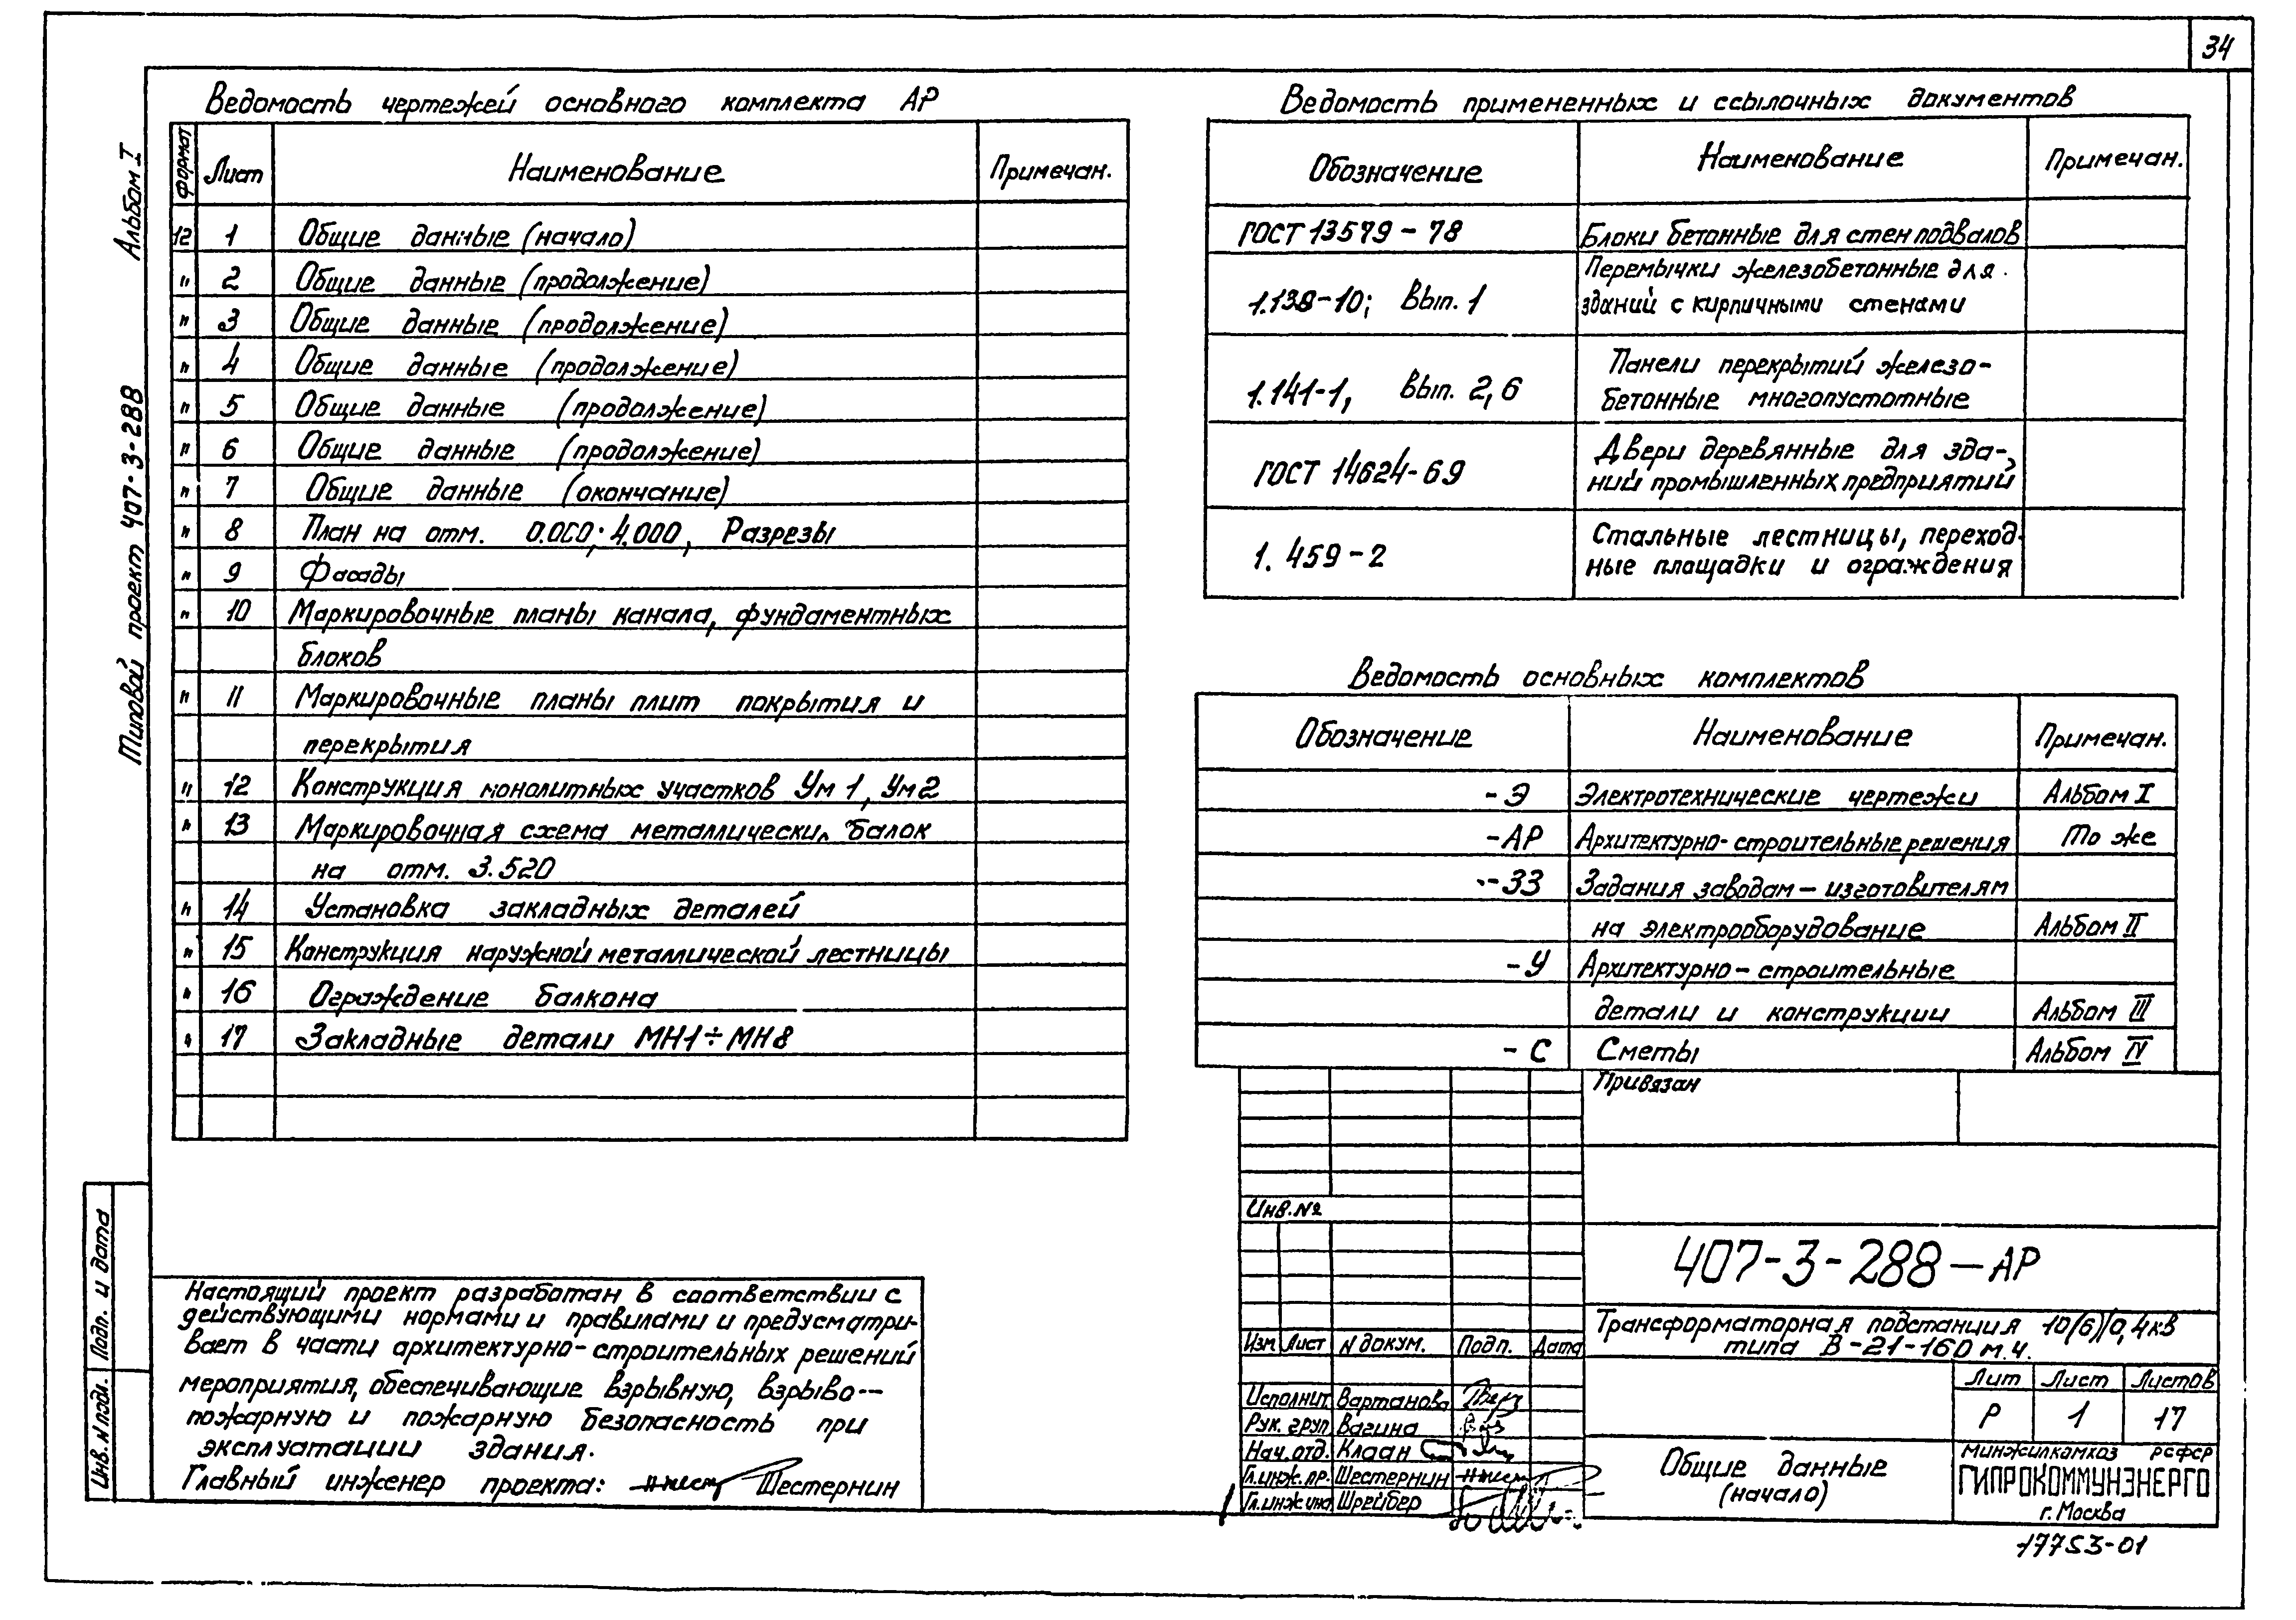 34
Альбом I
Типовой проект 407-3-288
Ведомость чертежей основного комплекта АР
Формат Лист Наименование Примечан.
12 1 Общие данные (начало)
" 2 Общие данные (продолжение)
" 3 Общие данные (продолжение)
" 4 Общие данные (продолжение)
" 5 Общие данные (продолжение)
" 6 Общие данные (продолжение)
" 7 Общие данные (окончание)
" 8 План на отм. 0.000; 4.000, Разрезы
" 9 Фасады
" 10 Маркировочные планы канала, фундаментных
блоков
" 11 Маркировочные планы плит покрытия и
перекрытия
" 12 Конструкция монолитных участков Ум 1, Ум2
" 13 Маркировочная схема металлических балок
на отм. 3.520
" 14 Установка закладных деталей
" 15 Конструкция наружной металлической лестницы
" 16 Ограждение балкона
" 17 Закладные детали МН1÷МН8
Ведомость примененных и ссылочных документов
Обозначение Наименование Примечан.
ГОСТ 13579-78 Блоки бетонные для стен подвалов
1.138-10; Вып. 1 Перемычки железобетонные для
зданий с кирпичными стенами
1.141-1, Вып. 2,6 Панели перекрытий железо-
бетонные многопустотные
ГОСТ 14624-69 Двери деревянные для зда-
ний промышленных предприятий
1.459-2 Стальные лестницы, переход-
ные площадки и ограждения
Ведомость основных комплектов
Обозначение Наименование Примечан.
-Э Электротехнические чертежи Альбом I
-АР Архитектурно-строительные решения То же
-ЗЗ Задания заводам-изготовителям
на электрооборудование Альбом II
-У Архитектурно-строительные
детали и конструкции Альбом III
-С Сметы Альбом IV
Привязан
Инв.№
Изм Лист N докум. Подп. Дата
Исполнит. Вартанова
Рук. груп Вагина
Нач. отд. Клаан
Гл.инж.пр. Шестернин
Гл.инж.инс Шрейбер
407-3-288-АР
Трансформаторная подстанция 10(6)/0,4кв
типа В-21-160 м.ч.
Лит Лист Листов
Р 1 17
Общие данные
(начало)
Минжилкомхоз РСФСР
ГИПРОКОММУНЭНЕРГО
г. Москва
17753-01
Настоящий проект разработан в соответствии с
действующими нормами и правилами и предусматри-
вает в части архитектурно-строительных решений
мероприятия, обеспечивающие взрывную, взрыво-
пожарную и пожарную безопасность при
эксплуатации здания.
Главный инженер проекта: Шестернин
Инв.N подл. Подп. и дата